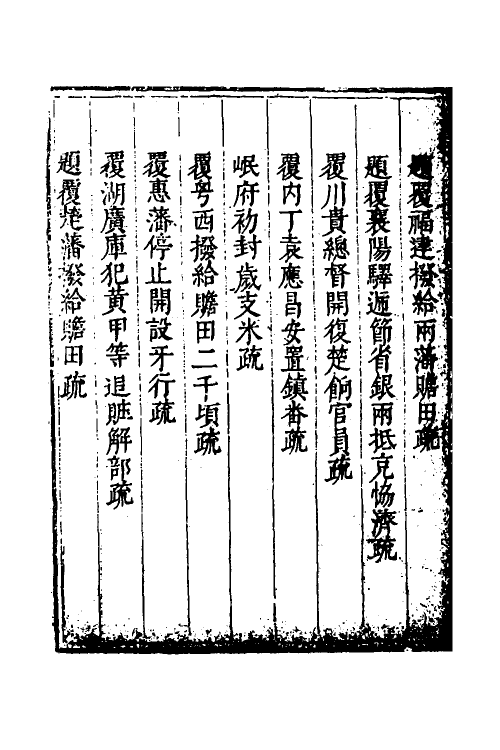 題覆福建撥給兩藩贍田疏
題覆襄陽驛遞節省銀兩抵充恊濟疏
覆川貴總督開復楚餉官員疏
覆内丁袁應昌安置鎮畨疏
岷府初封歲支米疏
覆粤西撥給贍田二千頃疏
覆惠藩停止開設牙行疏
覆湖廣庫犯黄甲等追賍解部疏
題覆藩撥給贍田疏